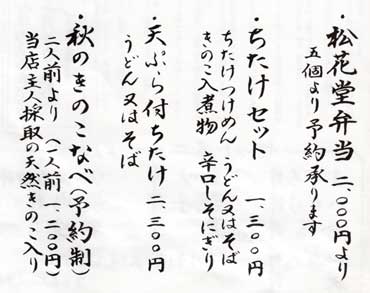 ・松花堂弁当 二、〇〇〇円より
五個より予約承ります
・ちたけセット 一、三〇〇円
ちたけつけめん うどん又はそば
きのこ入煮物 辛口しそにぎり
・天ぷら付ちたけ 二、三〇〇円
うどん又はそば
・秋のきのこなべ(予約制)
二人前より (一人前 一、二〇〇円)
当店主人採取の天然きのこ入り